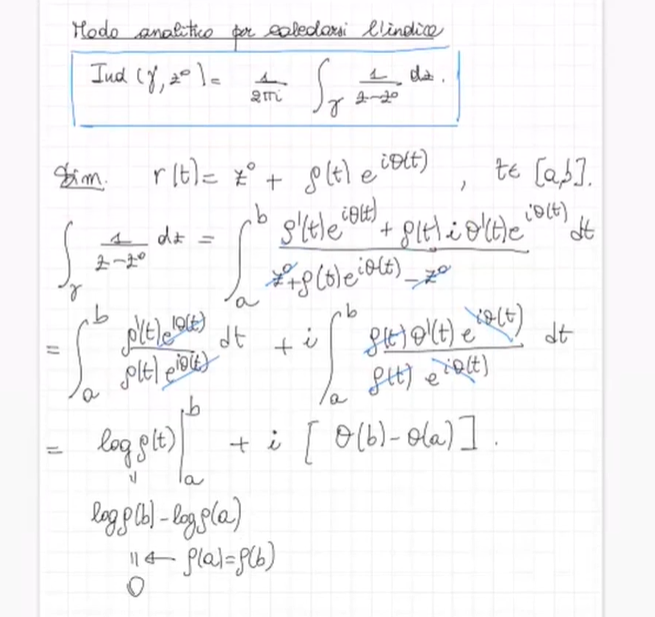 Modo analitico per calcolarsi l'indice
Ind (γ, z⁰) = 1/2πi ∫_γ 1/(z-z⁰) dz.
Dim. r(t) = z⁰ + ρ(t) e^{iθ(t)}, t∈ [a,b].
∫_γ 1/(z-z⁰) dz = ∫_a^b (ρ'(t)e^{iθ(t)} + ρ(t) i θ'(t) e^{iθ(t)})/(z⁰+ρ(t)e^{iθ(t)}-z⁰) dt
= ∫_a^b (ρ'(t)e^{iθ(t)})/(ρ(t)e^{iθ(t)}) dt + i ∫_a^b (ρ(t)θ'(t) e^{iθ(t)})/(ρ(t) e^{iθ(t)}) dt
= log ρ(t) |_a^b + i [ θ(b)-θ(a) ].
"
log ρ(b) - log ρ(a)
" ← ρ(a)=ρ(b)
0